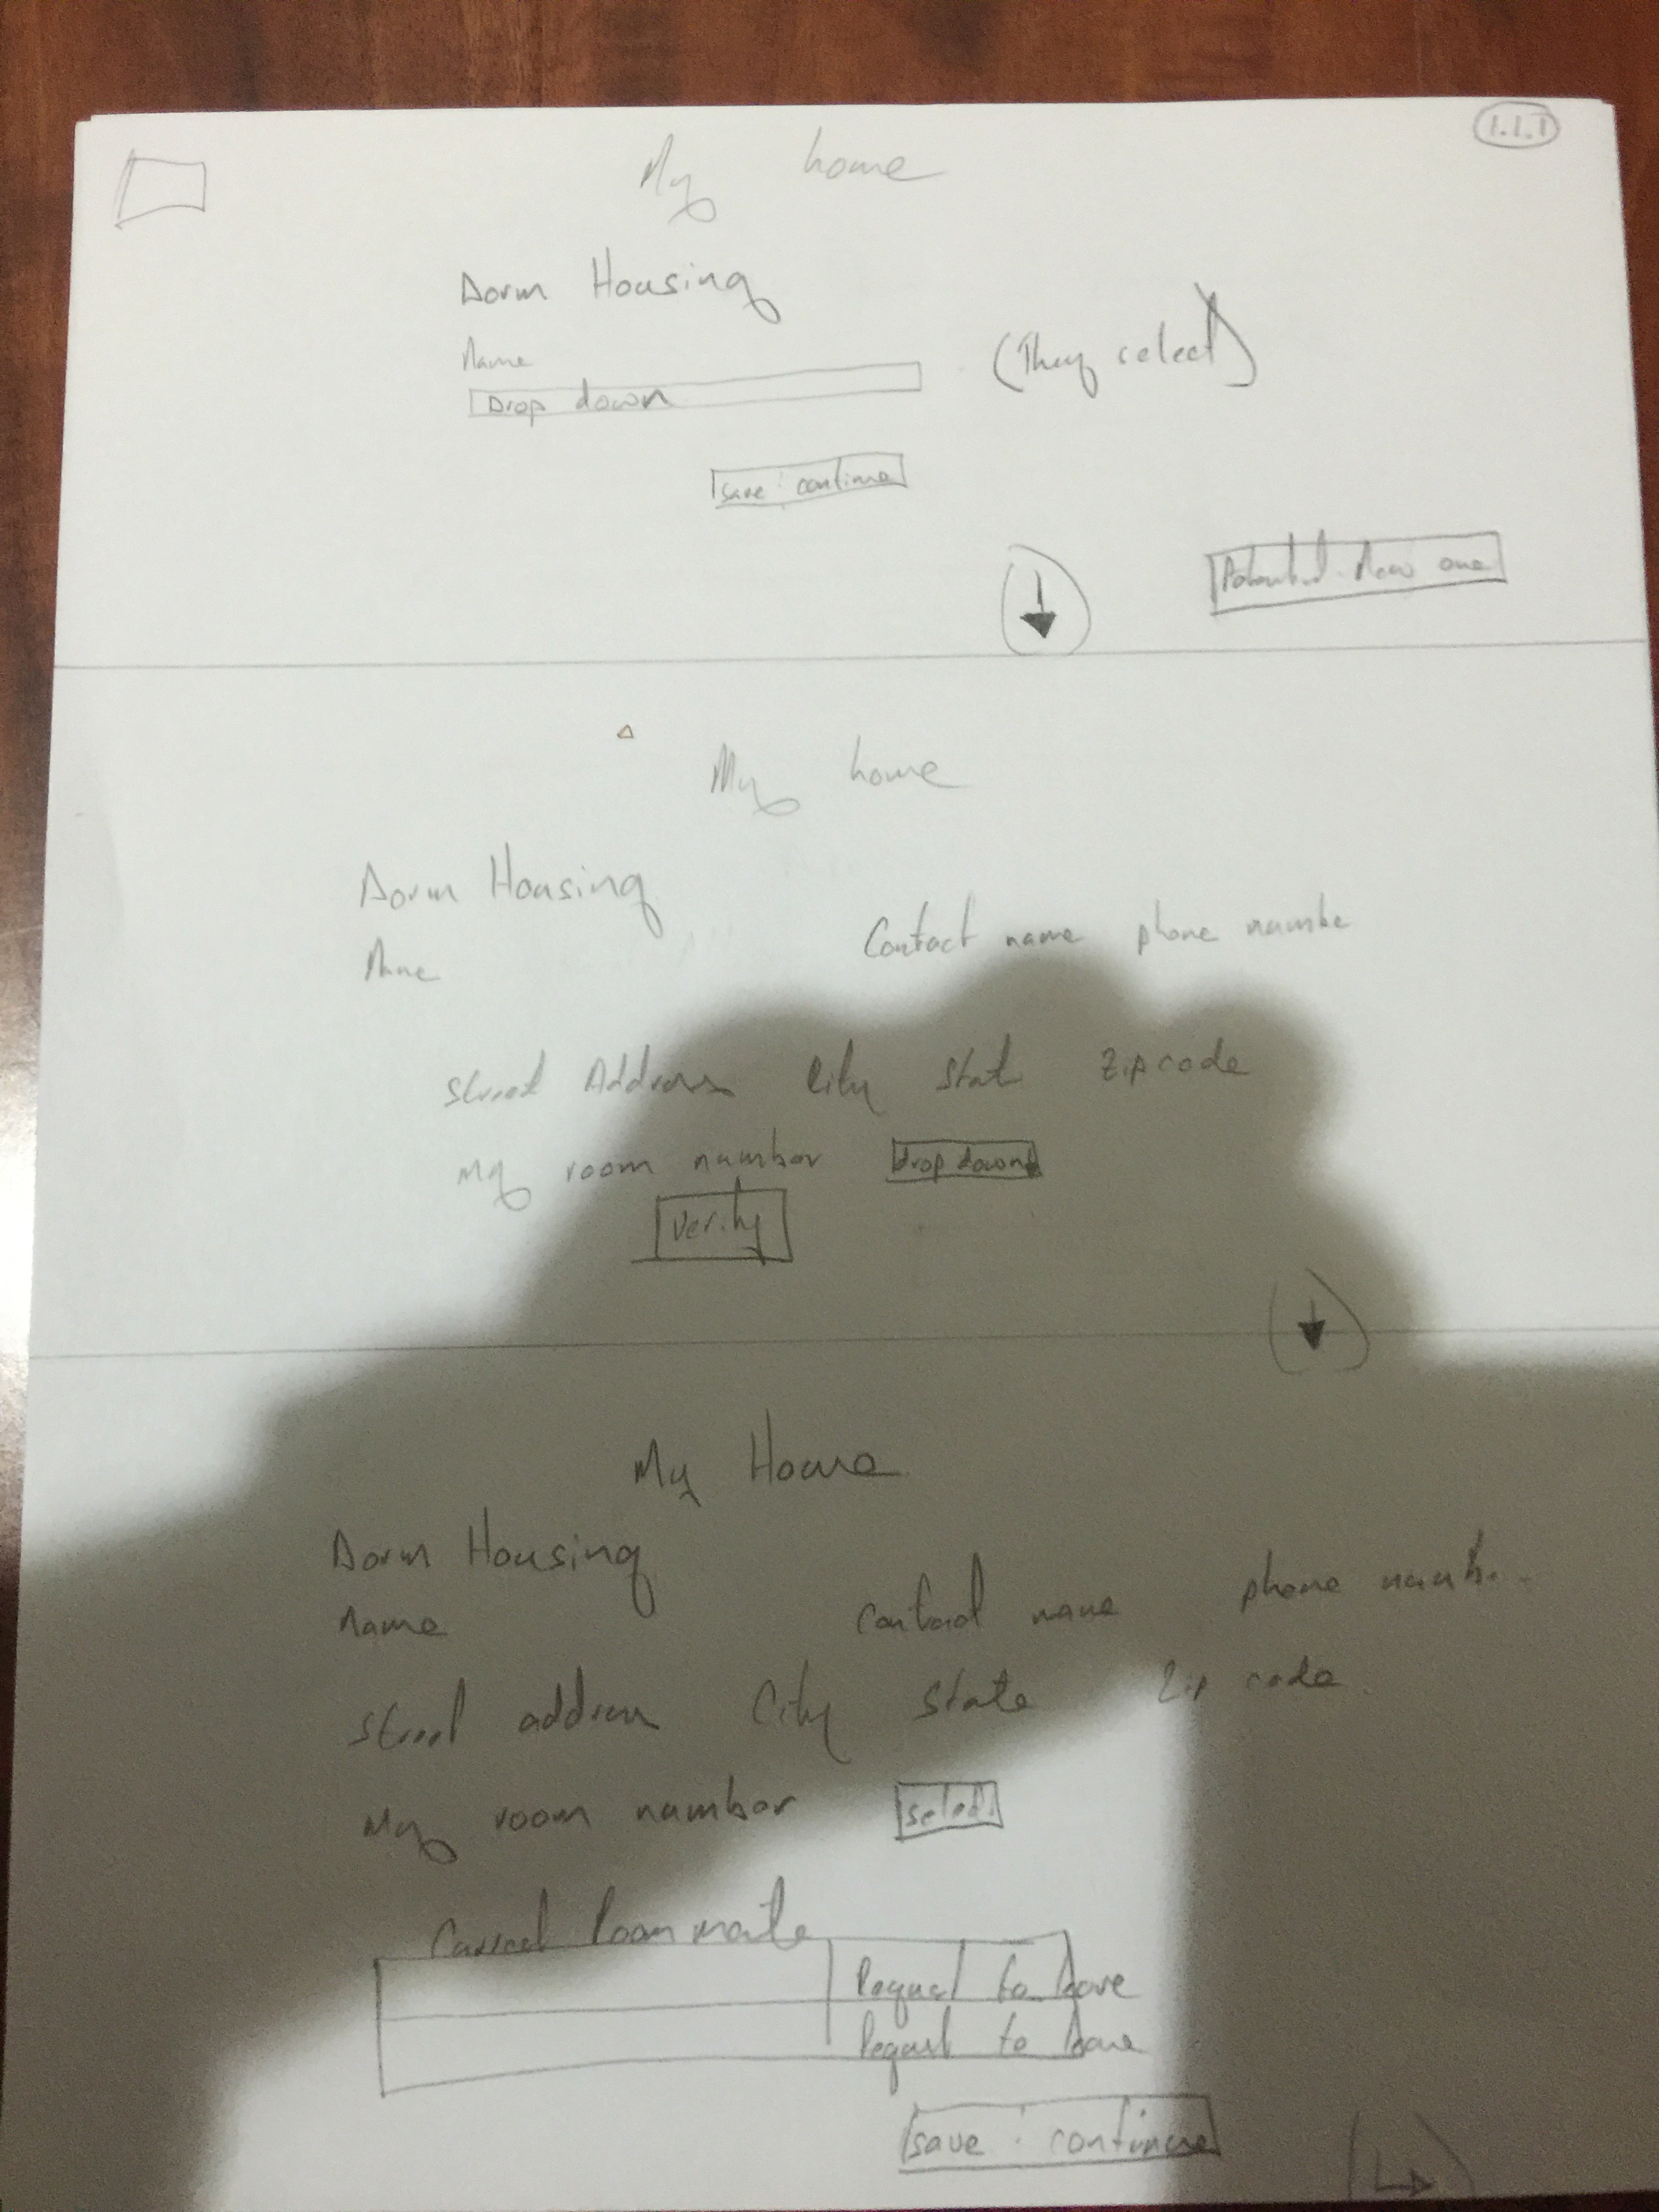 1.1.1
My home
Dorm Housing
Name
Drop down
(They select)
save : continue
Potential New one
My home
Dorm Housing
Name
Contact name phone numbe
Street Address City State Zip code
My room number drop down
Verify
My Home
Dorm Housing
Name
Contact name phone
Street address City State Zip code
My room number select
Current Roommate
Request to leave
Request to leave
save : continue